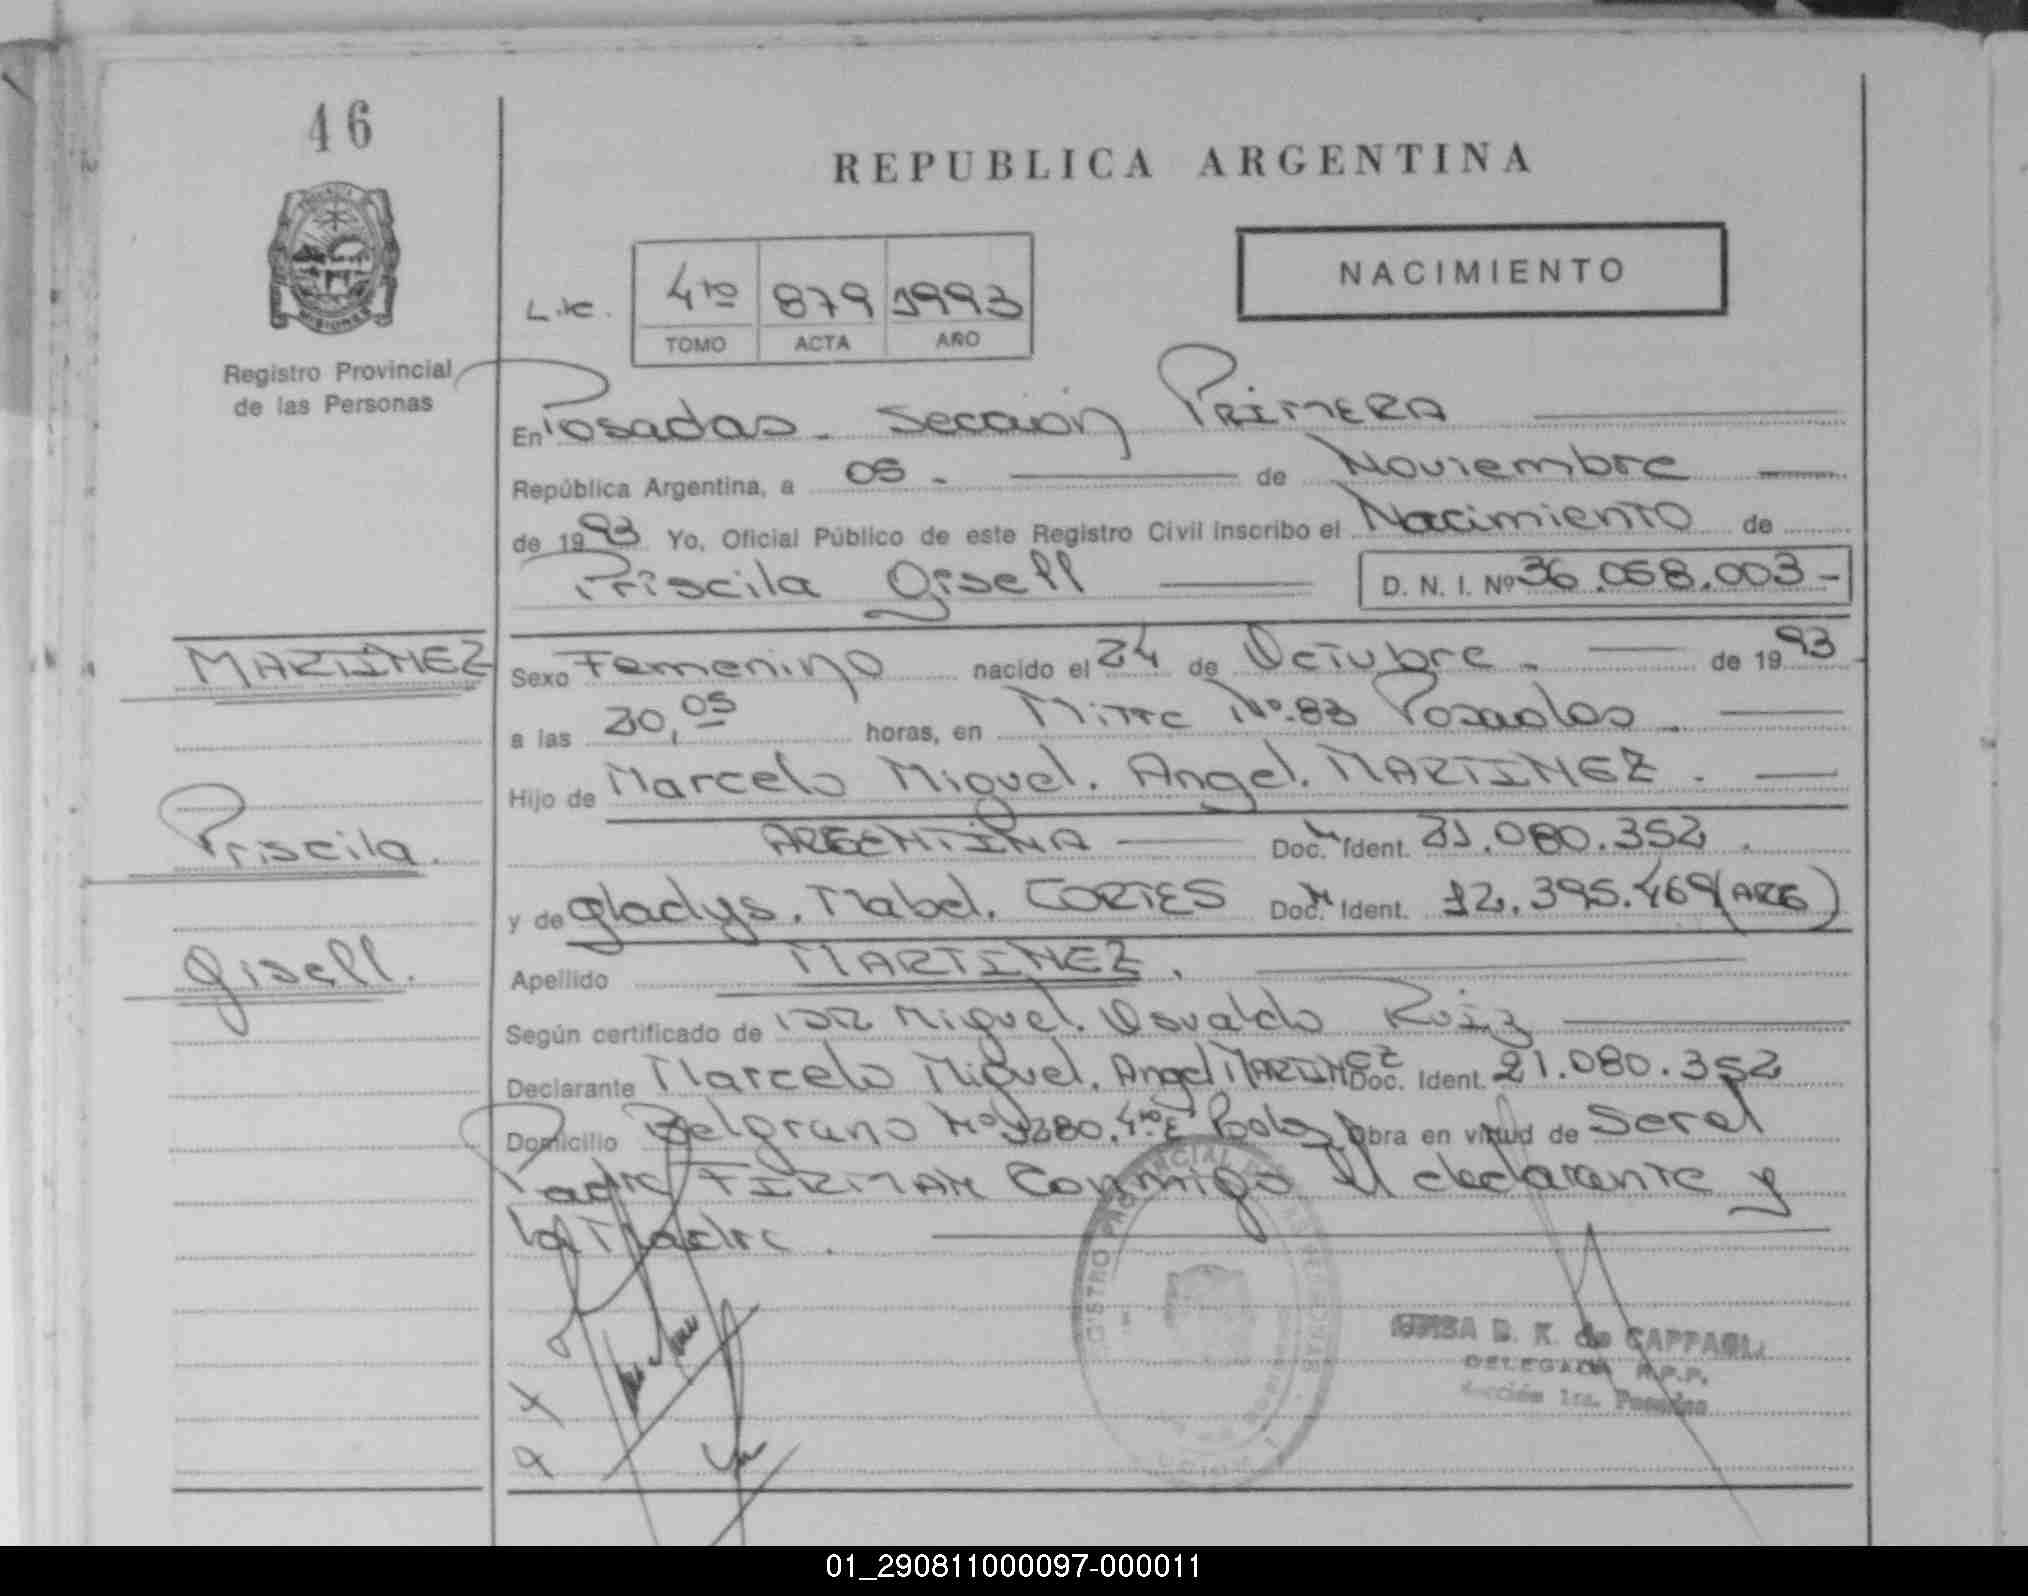 46
REPUBLICA ARGENTINA
NACIMIENTO
4to 879 1993
TOMO ACTA AÑO
MISIONES
Registro Provincial
de las Personas
En Posadas. Sección PRIMERA
República Argentina, a 05 - de Noviembre
de 1993 Yo, Oficial Público de este Registro Civil inscribo el Nacimiento de
Priscila Gisell D. N. I. Nº 36.058.003-
MARTINEZ
Sexo Femenino nacido el 24 de Octubre. de 1993
a las 20,05 horas, en Mitre Nº.83 Posadas.
Hijo de Marcelo Miguel. Angel. MARTINEZ.
Priscila.
ARGENTINA Doc. Ident. 21.080.352.
y de Gladys. Mabel. CORTES Doc. Ident. 12.395.469 (ARG)
Gisell.
Apellido MARTINEZ.
Según certificado de Miguel. Osvaldo Ruiz
Declarante Marcelo Miguel. Angel MARTINEZ Doc. Ident. 21.080.352
Domicilio Belgrano Nº Obra en virtud de Ser el
Padre FIRMAN Conmigo El declarante y
la Madre.
de CAPPAGLI
DELEGADA R.P.P.
Sección 1ra. Posadas
01_290811000097-000011